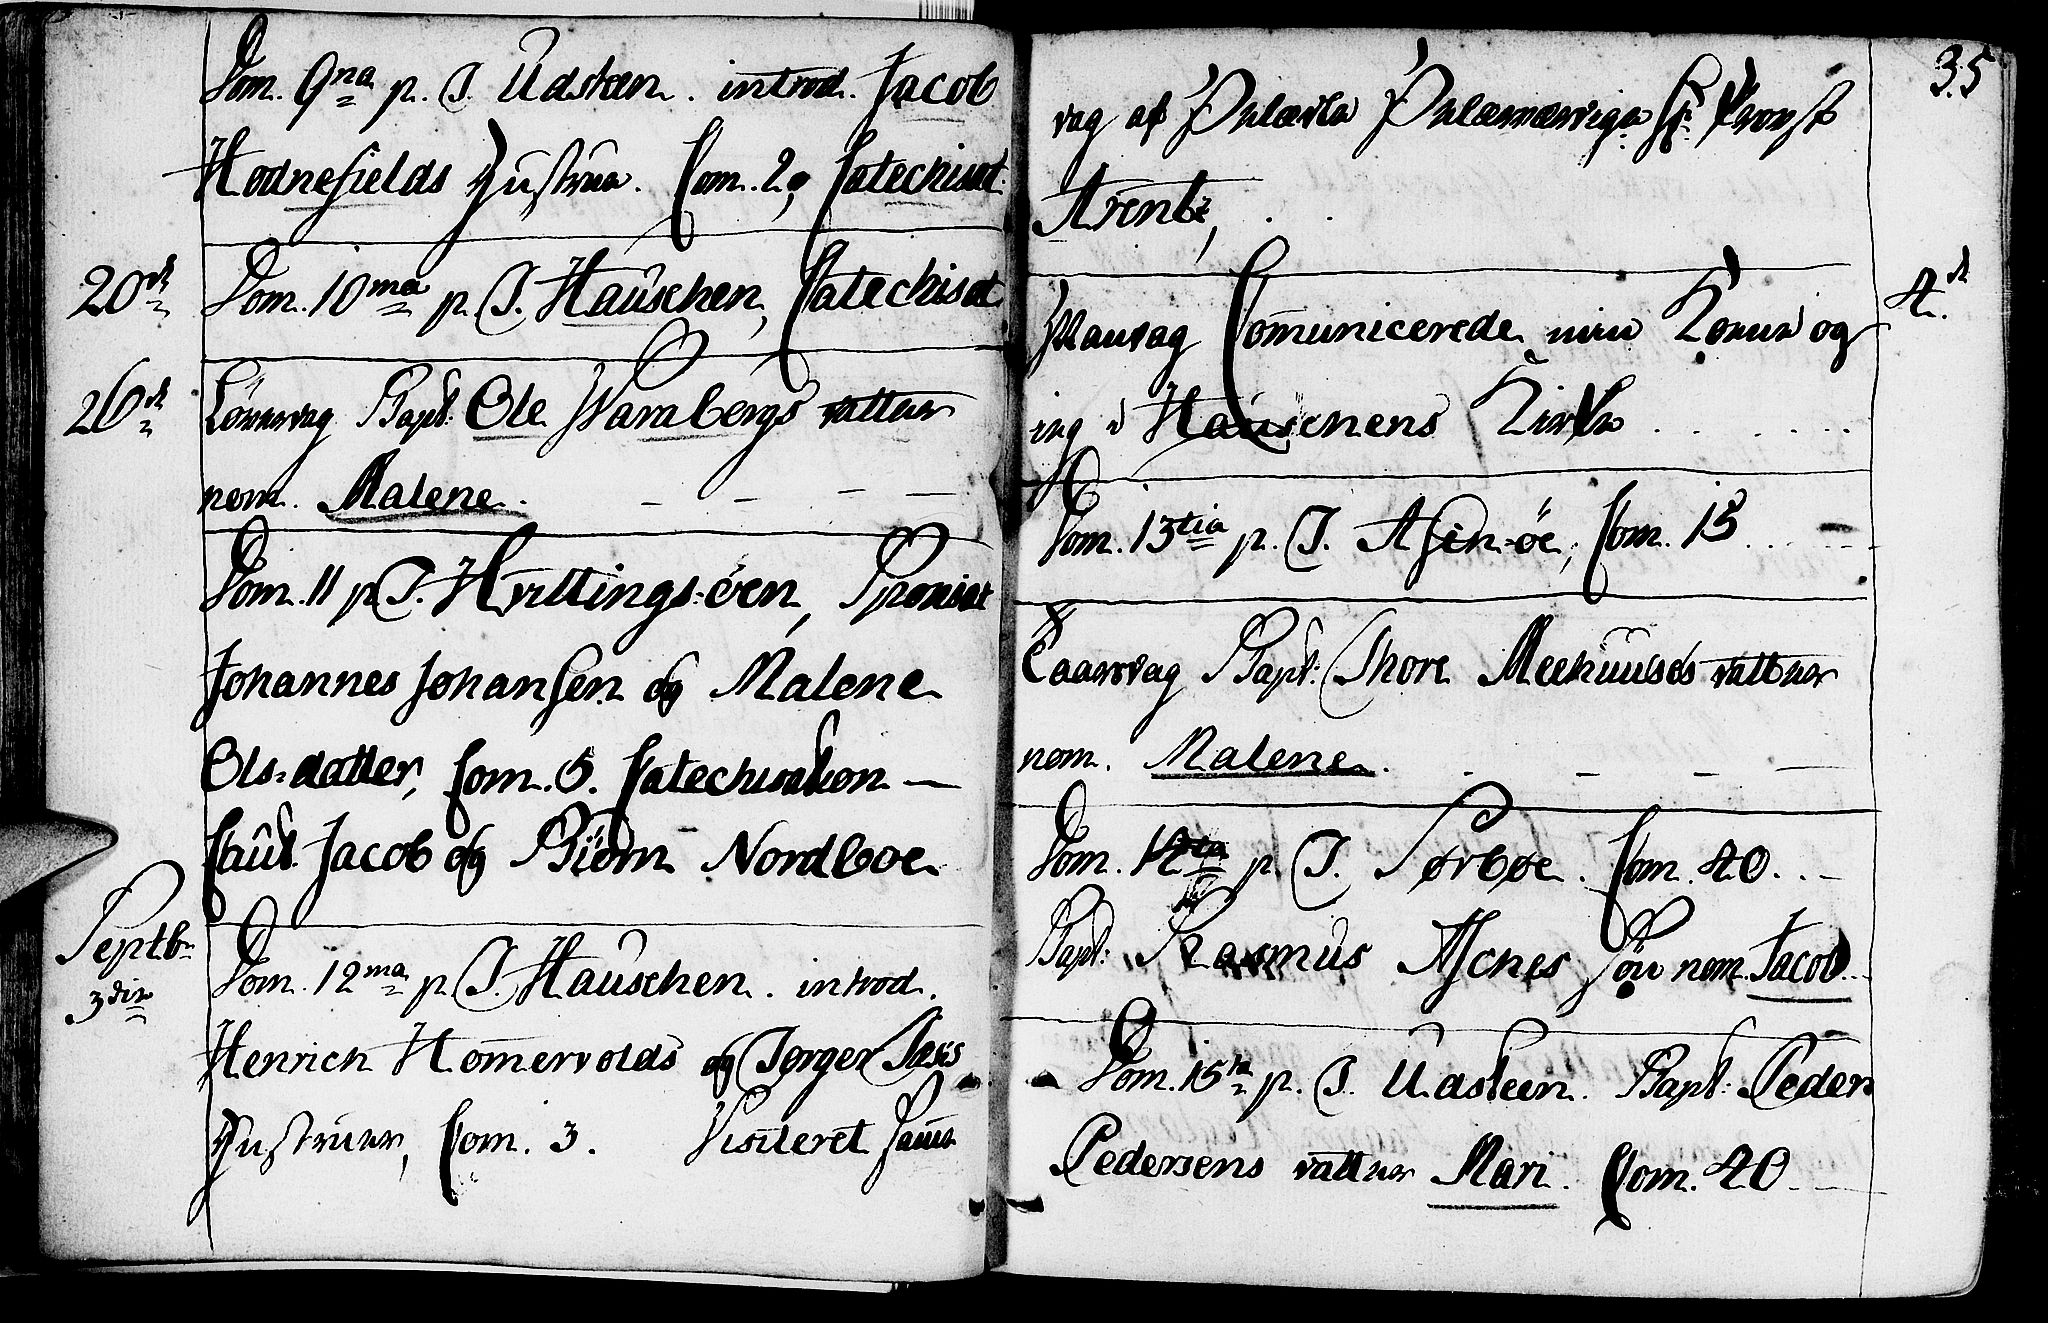 Dom. 9na p. T. Udsteen. introd. Jacob
Hodnefields Hustrue. Com. 29 Catechisat.
20de Dom. 10ma p. T. Hauschen, Catechisat
26de Löverdag Bapt. Ole Warabergs datter
nom. Malene.
Dom. 11 p. T. Hvittings-öen, Spons
Johannes Johansen og Malene
Ols-datter, Com. 5. Catechisation
Caut. Jacob og Biörn Nordboe
Septbr 3die
Dom. 12ma p. T. Hauschen. introd.
Henrich Homervolds og Torger
Hustruer, Com. 3. Visiteret samme
35
dag af Velærværdige Hr. Provst
Arentz,
4de
Mandag Comunicerede min Kone og
ieg i Hauschenens Kirke
Dom. 13tia p. T. Asken-öe, Com. 15
Bapt. Thore Meehuuses datter
nom. Malene.
Dom. p. T. Sørbøe. Com. 40.
Bapt. Rasmus Askies Sön nom. Jacob
Dom. 15ta p. T. Udsteen. Bapt. Peder
Pedersens datter Mari. Com. 40